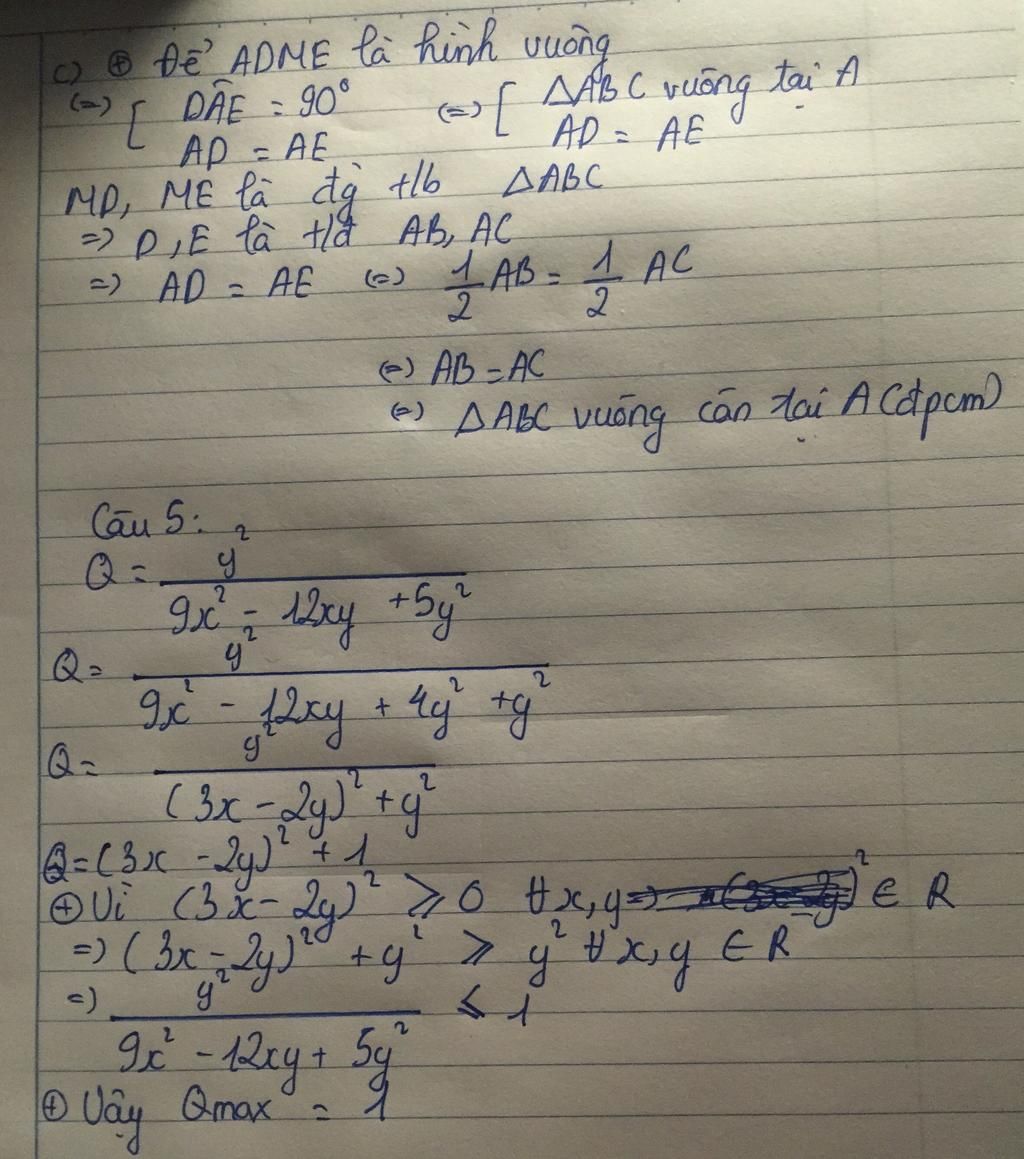 c) ⊕ Để ADME là hình vuông
(=) [ DÂE = 90° (=) [ ΔABC vuông tại A
AD = AE AD = AE
MD, ME là đg t/b ΔABC
=) D, E là t/đ AB, AC
=) AD = AE (=) 1/2 AB = 1/2 AC
(=) AB = AC
(=) ΔABC vuông cân tại A (đpcm)
Câu 5:
Q = y² / 9x² - 12xy + 5y²
Q = y² / 9x² - 12xy + 4y² + y²
Q = y² / (3x - 2y)² + y²
Q = (3x - 2y)² + 1
⊕ Vì (3x - 2y)² ≥ 0 ∀x, y ∈ R
=) (3x - 2y)² + y² ≥ y² ∀x, y ∈ R
=) y² / 9x² - 12xy + 5y² ≤ 1
⊕ Vậy Qmax = 1